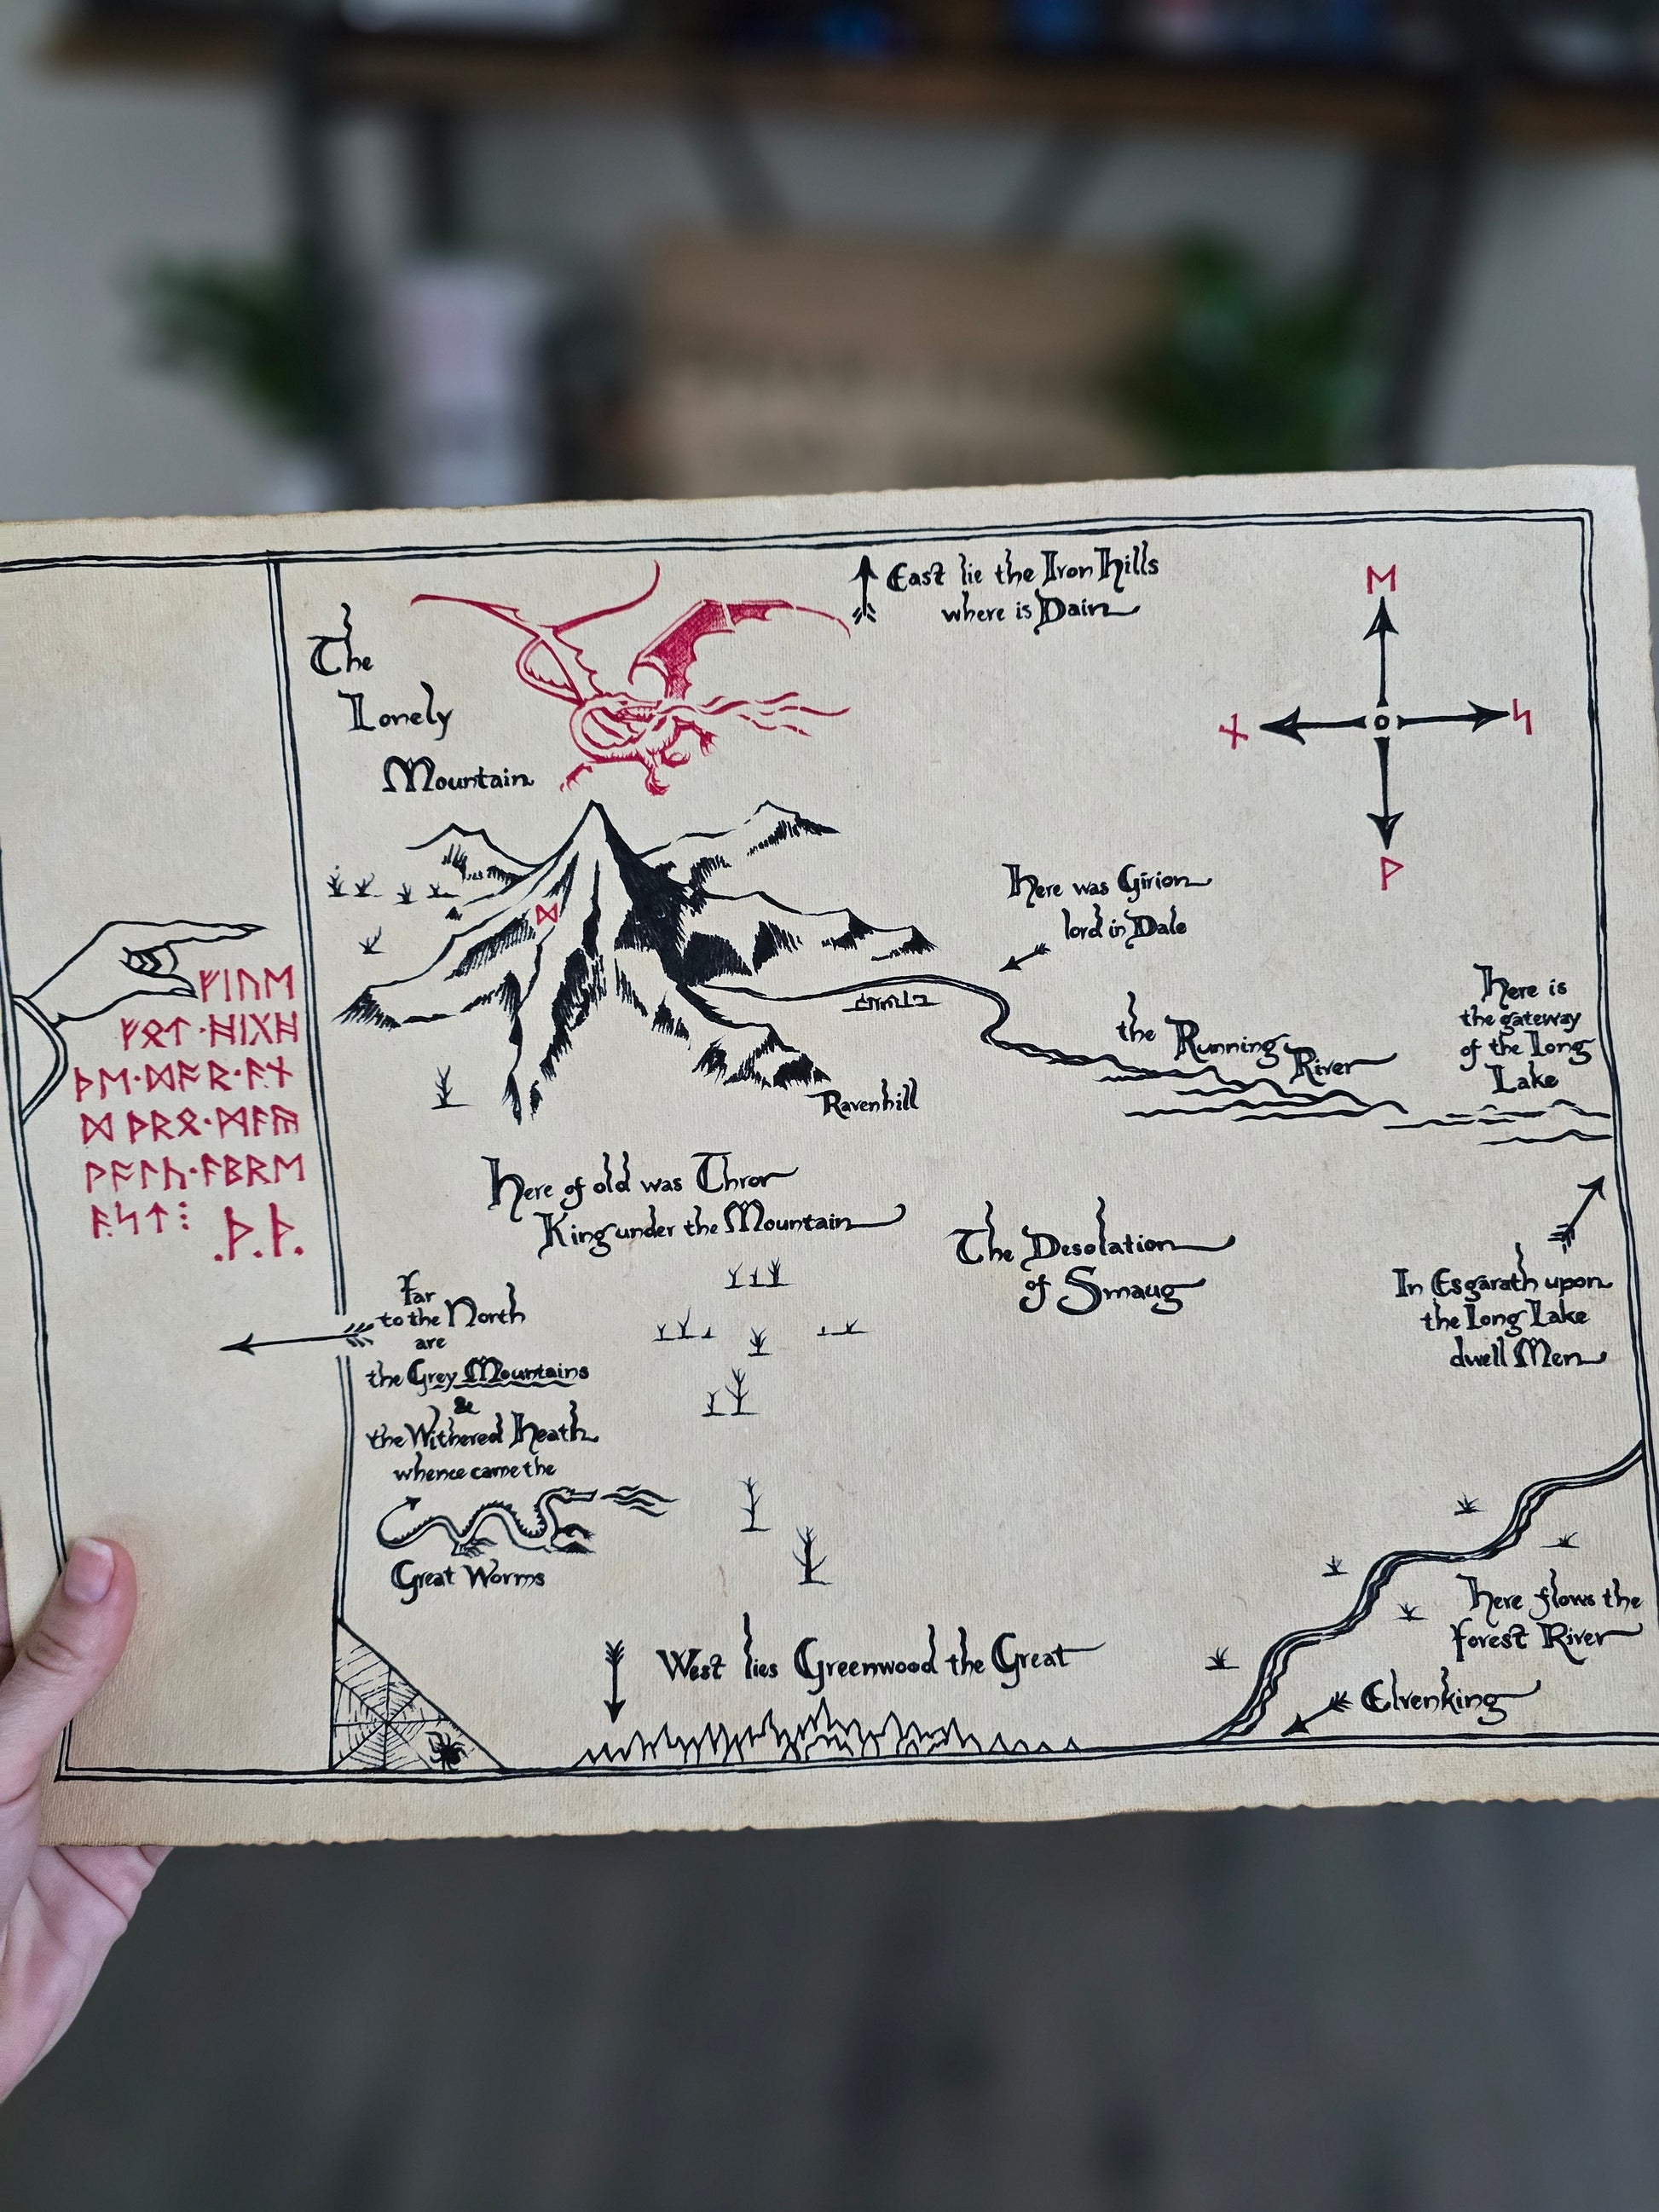 ᚠᛁᚢᛖ
ᚠᛟᛏ·ᚻᛁᚷᚻ
ᚦᛖ·ᛞᚩᚱ·ᚪᚾ
ᛞ ᚦᚱᛟ·ᛗᚪᚣ
ᚹᚪᛚᚳ·ᚪᛒᚱᛖ
ᚪᛋᛏ⁝ .ᚦ.ᚦ.
The
Lonely
Mountain
East lie the Iron Hills
where is Dain
ᛖ
ᚾ
ᛋ
ᚹ
Here was Girion
lord in Dale
the Running
River
Here is
the gateway
of the Long
Lake
Ravenhill
Here of old was Thror
King under the Mountain
The Desolation
of Smaug
In Esgaroth upon
the Long Lake
dwell Men
Far
to the North
are
the Grey Mountains
&
the Withered Heath
whence came the
Great Worms
West lies Greenwood the Great
Here flows the
forest River
Elvenking